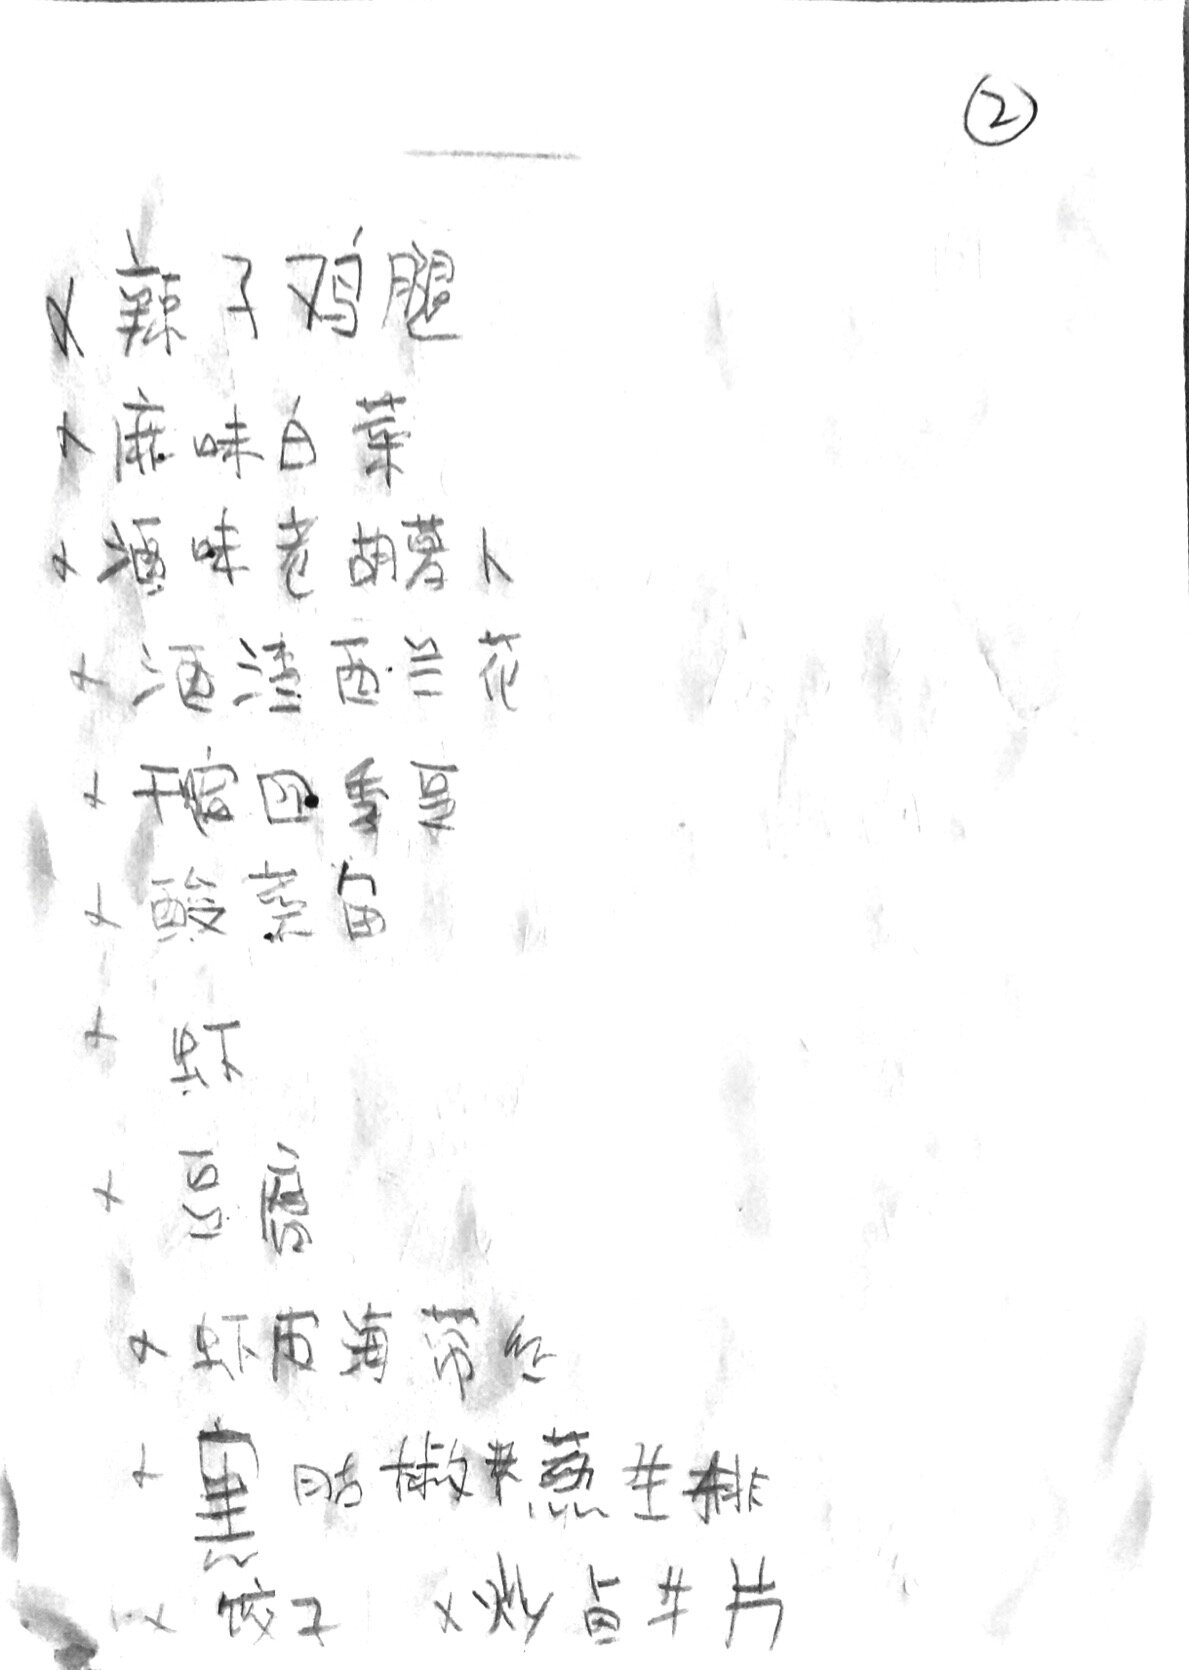 ②
x 辣子鸡腿
x 麻味白菜
x 酒味老胡萝卜
x 酒渍西兰花
x 干窝四季豆
x 酸菜鱼
x 虾
x
x 虾皮海带丝
x 黑胡椒蒸牛排
x 饺子 x 炒卤牛片